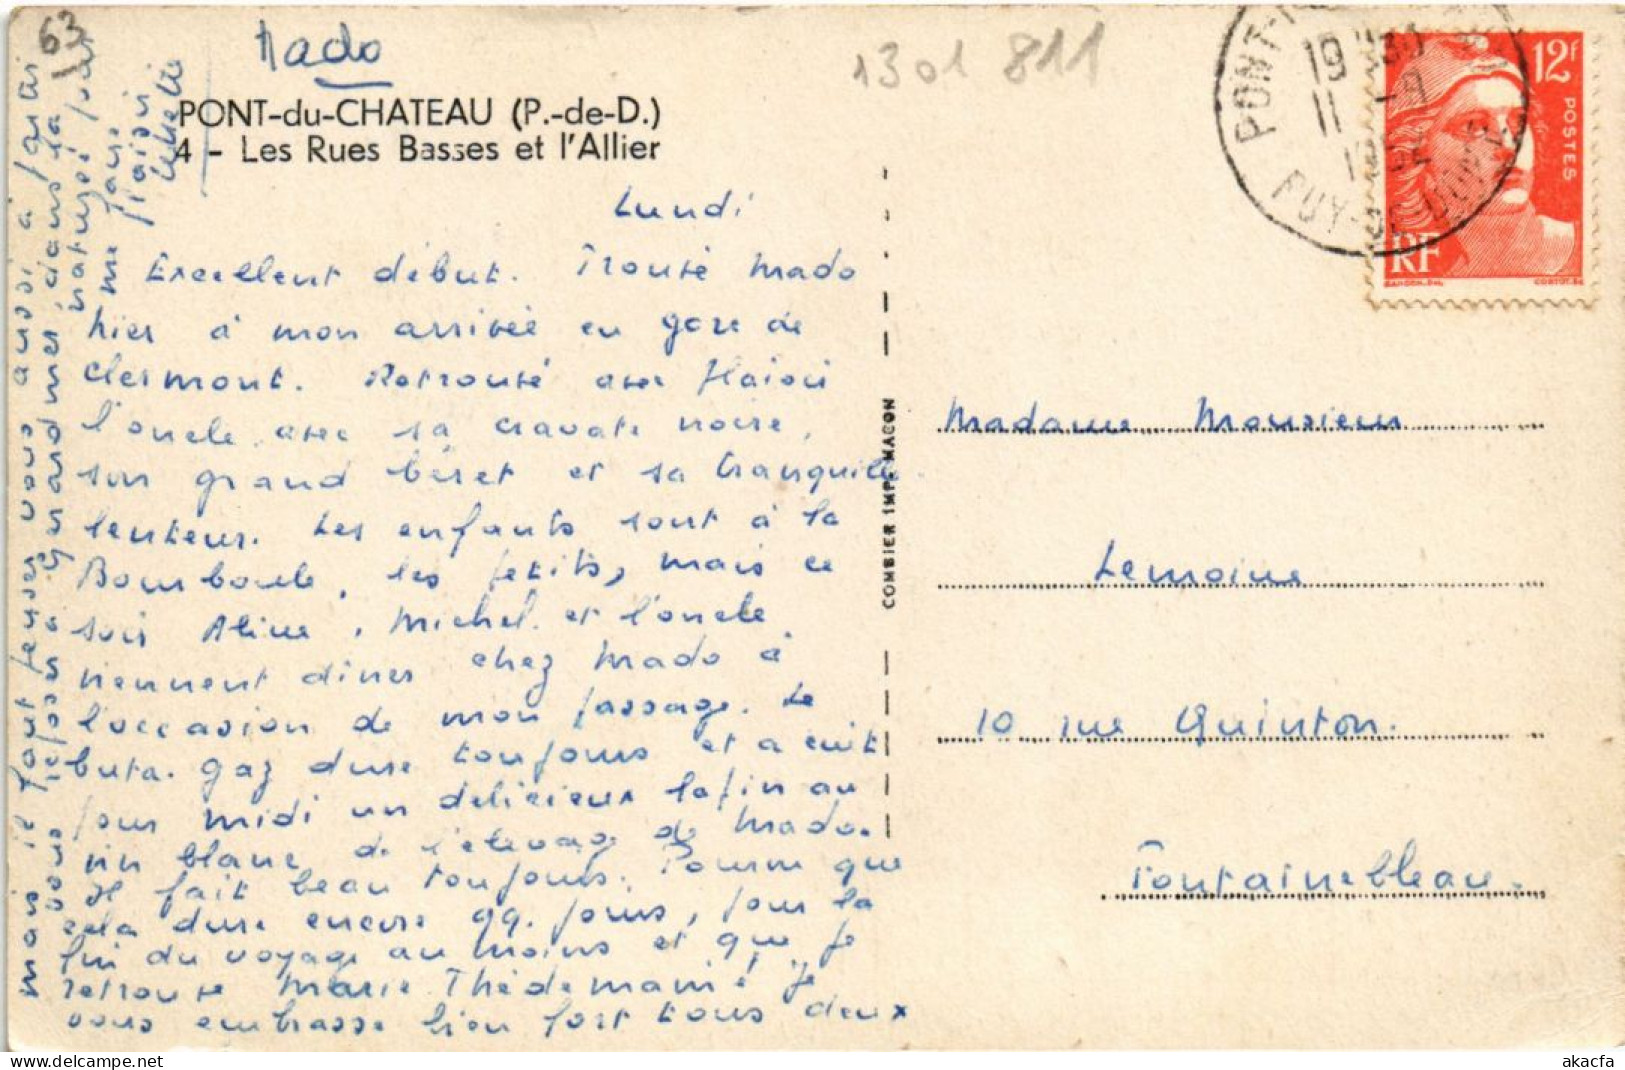 63
Mado
1301 811
PONT-du-CHATEAU (P.-de-D.)
4 - Les Rues Basses et l'Allier
Lundi
Excellent début. Trouvé Mado
hier à mon arrivée en gare de
Clermont. Retrouvé avec plaisir
l'oncle avec sa cravate noire,
son grand béret et sa tranquille
lenteur. Les enfants sont à la
Bourboule, les petits, mais ce
soir Aline, Michel et l'oncle
viennent diner chez Mado à
l'occasion de mon passage. Le
buta-gaz dure toujours et a cuit
pour midi un délicieux lapin au
vin blanc de l'élevage de Mado.
Il fait beau toujours. Pourvu que
cela dure encore qq. jours, pour la
fin du voyage au moins et que je
retrouve Marie Thé de main! Je
vous embrasse bien fort tous deux
mais il faut penser vous aussi à partir
vous reposer grand mer, dans la
nature,
me faire
plaisir
COMBIER IMP. MACON
PONT-
PUY-DE-DOME
19 30
11 -9
12f
POSTES
RF
GANDON. DEL.
CORTOT. SC
Madame Monsieur
Lemoine
10 rue Guinton.
Fontainebleau.
akacfa